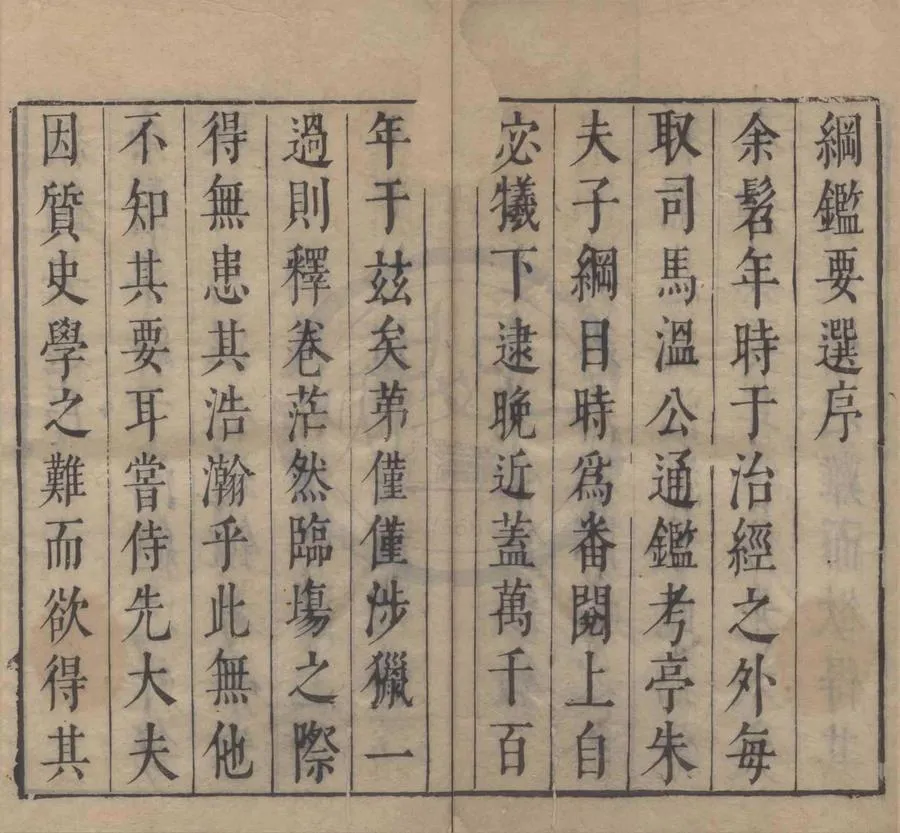 綱鑑要選序
余髫年時于治經之外每
取司馬溫公通鑑考亭朱
夫子綱目時爲番閱上自
宓犧下逮晚近蓋萬千百
年于兹矣苐僅僅涉獵一
過則釋卷茫然臨塲之際
得無患其浩瀚乎此無他
不知其要耳甞侍先大夫
因質史學之難而欲得其